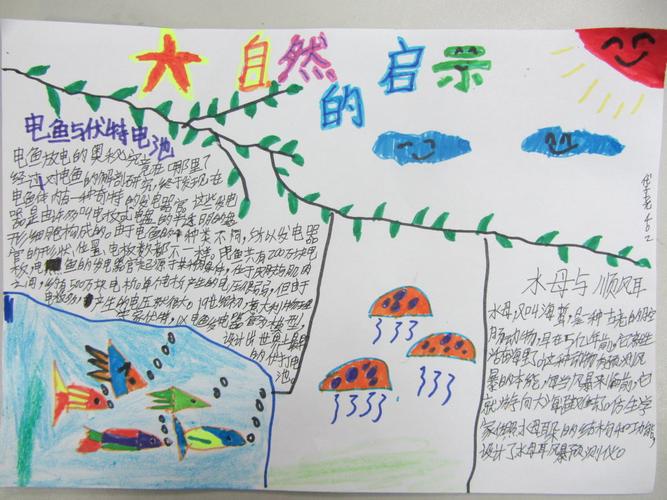 大自然的启示
电鱼与伏特电池
电鱼放电的奥秘究竟在哪里？
经过对电鱼的解剖研究，终于发现在
电鱼体内有一种奇特的发电器官。这些发电
器是由许多叫电板或电盘的半透明的盘
形细胞构成的。由于电鱼的种类不同，所以发电器
官的形状、位置、电板数都不一样。电鱼共有200万块电
板，
鱼的发电器官起源于某种腺体，位于皮肤与肌肉
之间，约有500万块电板。单个电板产生的电压很微弱，但由于
电板多，产生的电压就很大。19世纪初，意大利物理
学家伏特，以电鱼发电器官为模型，
设计出世界上最早
的伏打电
池。
水母与顺风耳
水母，又叫海蜇，是一种古老的腔
肠动物，早在5亿年前，它就生
活在海里了。这种动物有预测风
暴的本能，每当风暴来临前，它
就游向大海避难了。仿生学
家仿照水母耳朵的结构和功能，
设计了水母耳风暴预测仪。